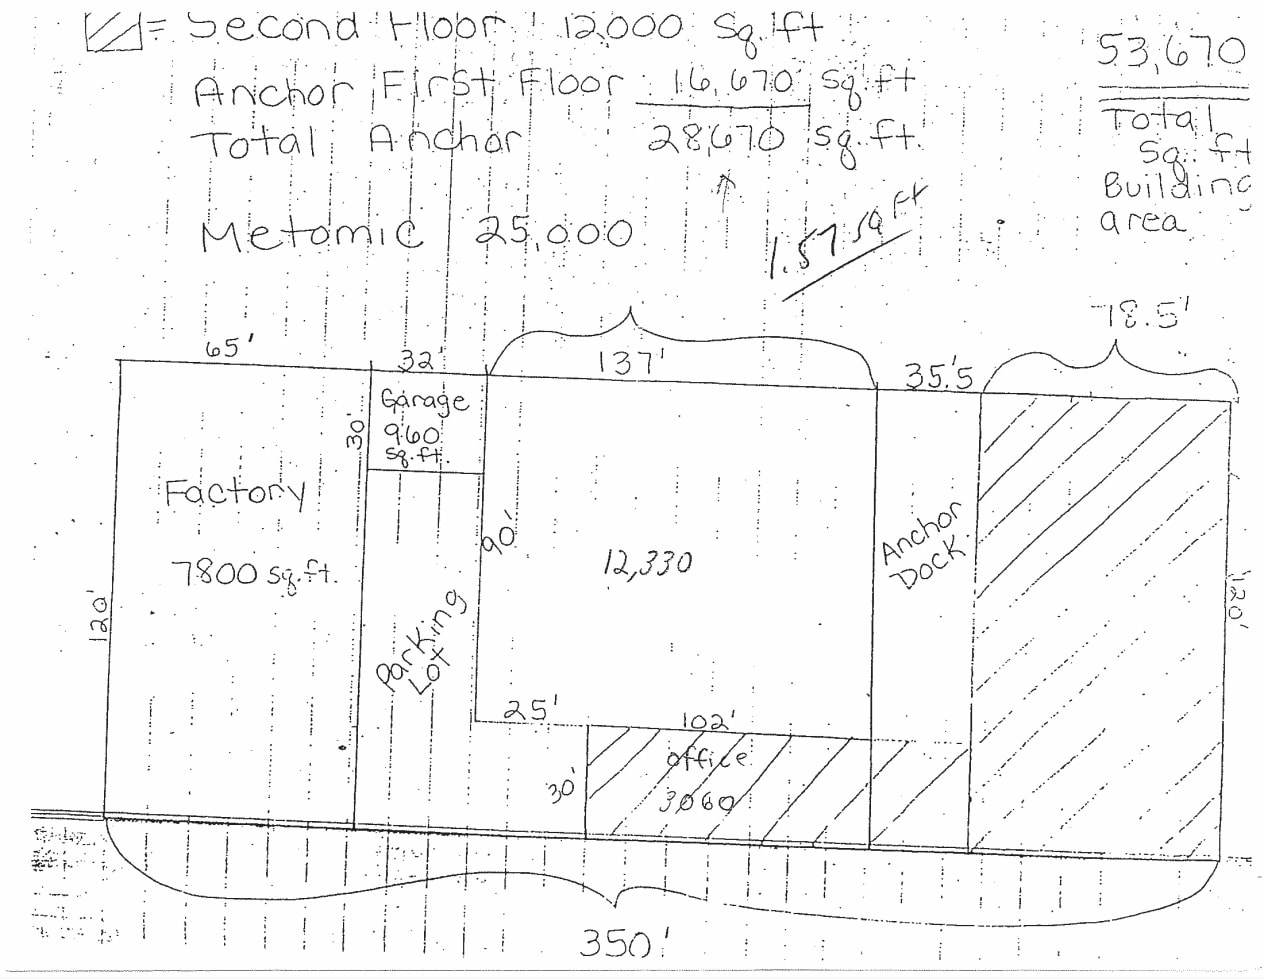 = Second Floor 12,000 Sq.ft
Anchor First Floor 16,670 sq.ft
Total Anchor 28,670 sq.ft.
Metomic 25,000
1.57 sq ft
53,670
Total
Sq. ft
Building
area
65'
32'
137'
35.'5
78.5'
Garage
960
sq.ft.
30'
Factory
7800 sq.ft.
120'
90'
12,330
Anchor
Dock
120'
Parking
Lot
25'
102'
office
3060
30'
350'